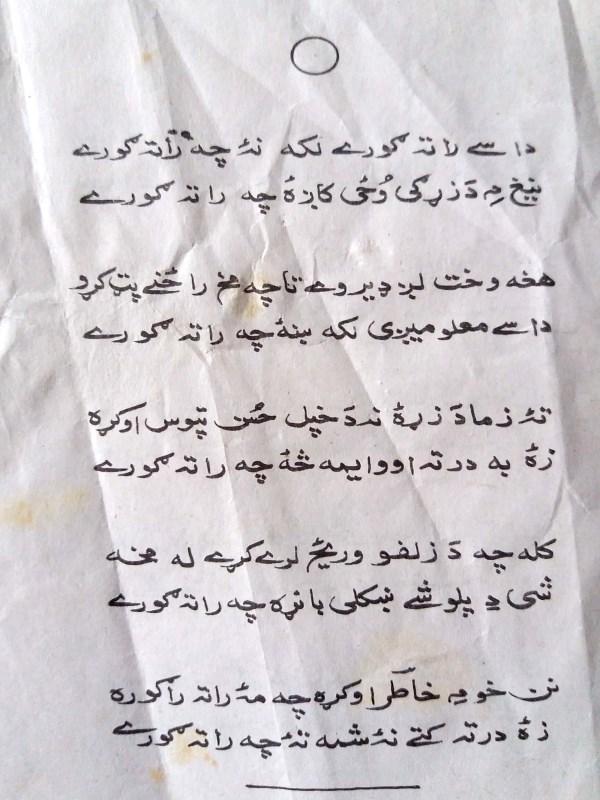 داسے راتہ ګورے لکه نۀ چه راتہ ګورے
نېغ مِ دَ زړګی وُځی کاږۀ چه راتہ ګورے
هغه وخت لږ ډېر وے تا چه مخ راځنے پټ کړو
داسے معلومیږی لکه ښۀ چه راتہ ګورے
تۀ زما دَ زړۀ نہ دَ خپل حُسن تپوس اوکړه
زۀ به درتہ اووایمه څۀ چه راتہ ګورے
کله چه دَ زلفو وریځ لرے کړے له مخه
شی دِ پلوشے ښکلی باڼۀ چه راتہ ګورے
نن خو مِ خاطر اوکړه چه مۀ راتہ راګوره
زۀ درتہ کتے نۀ شمه تۀ چه راتہ ګورے